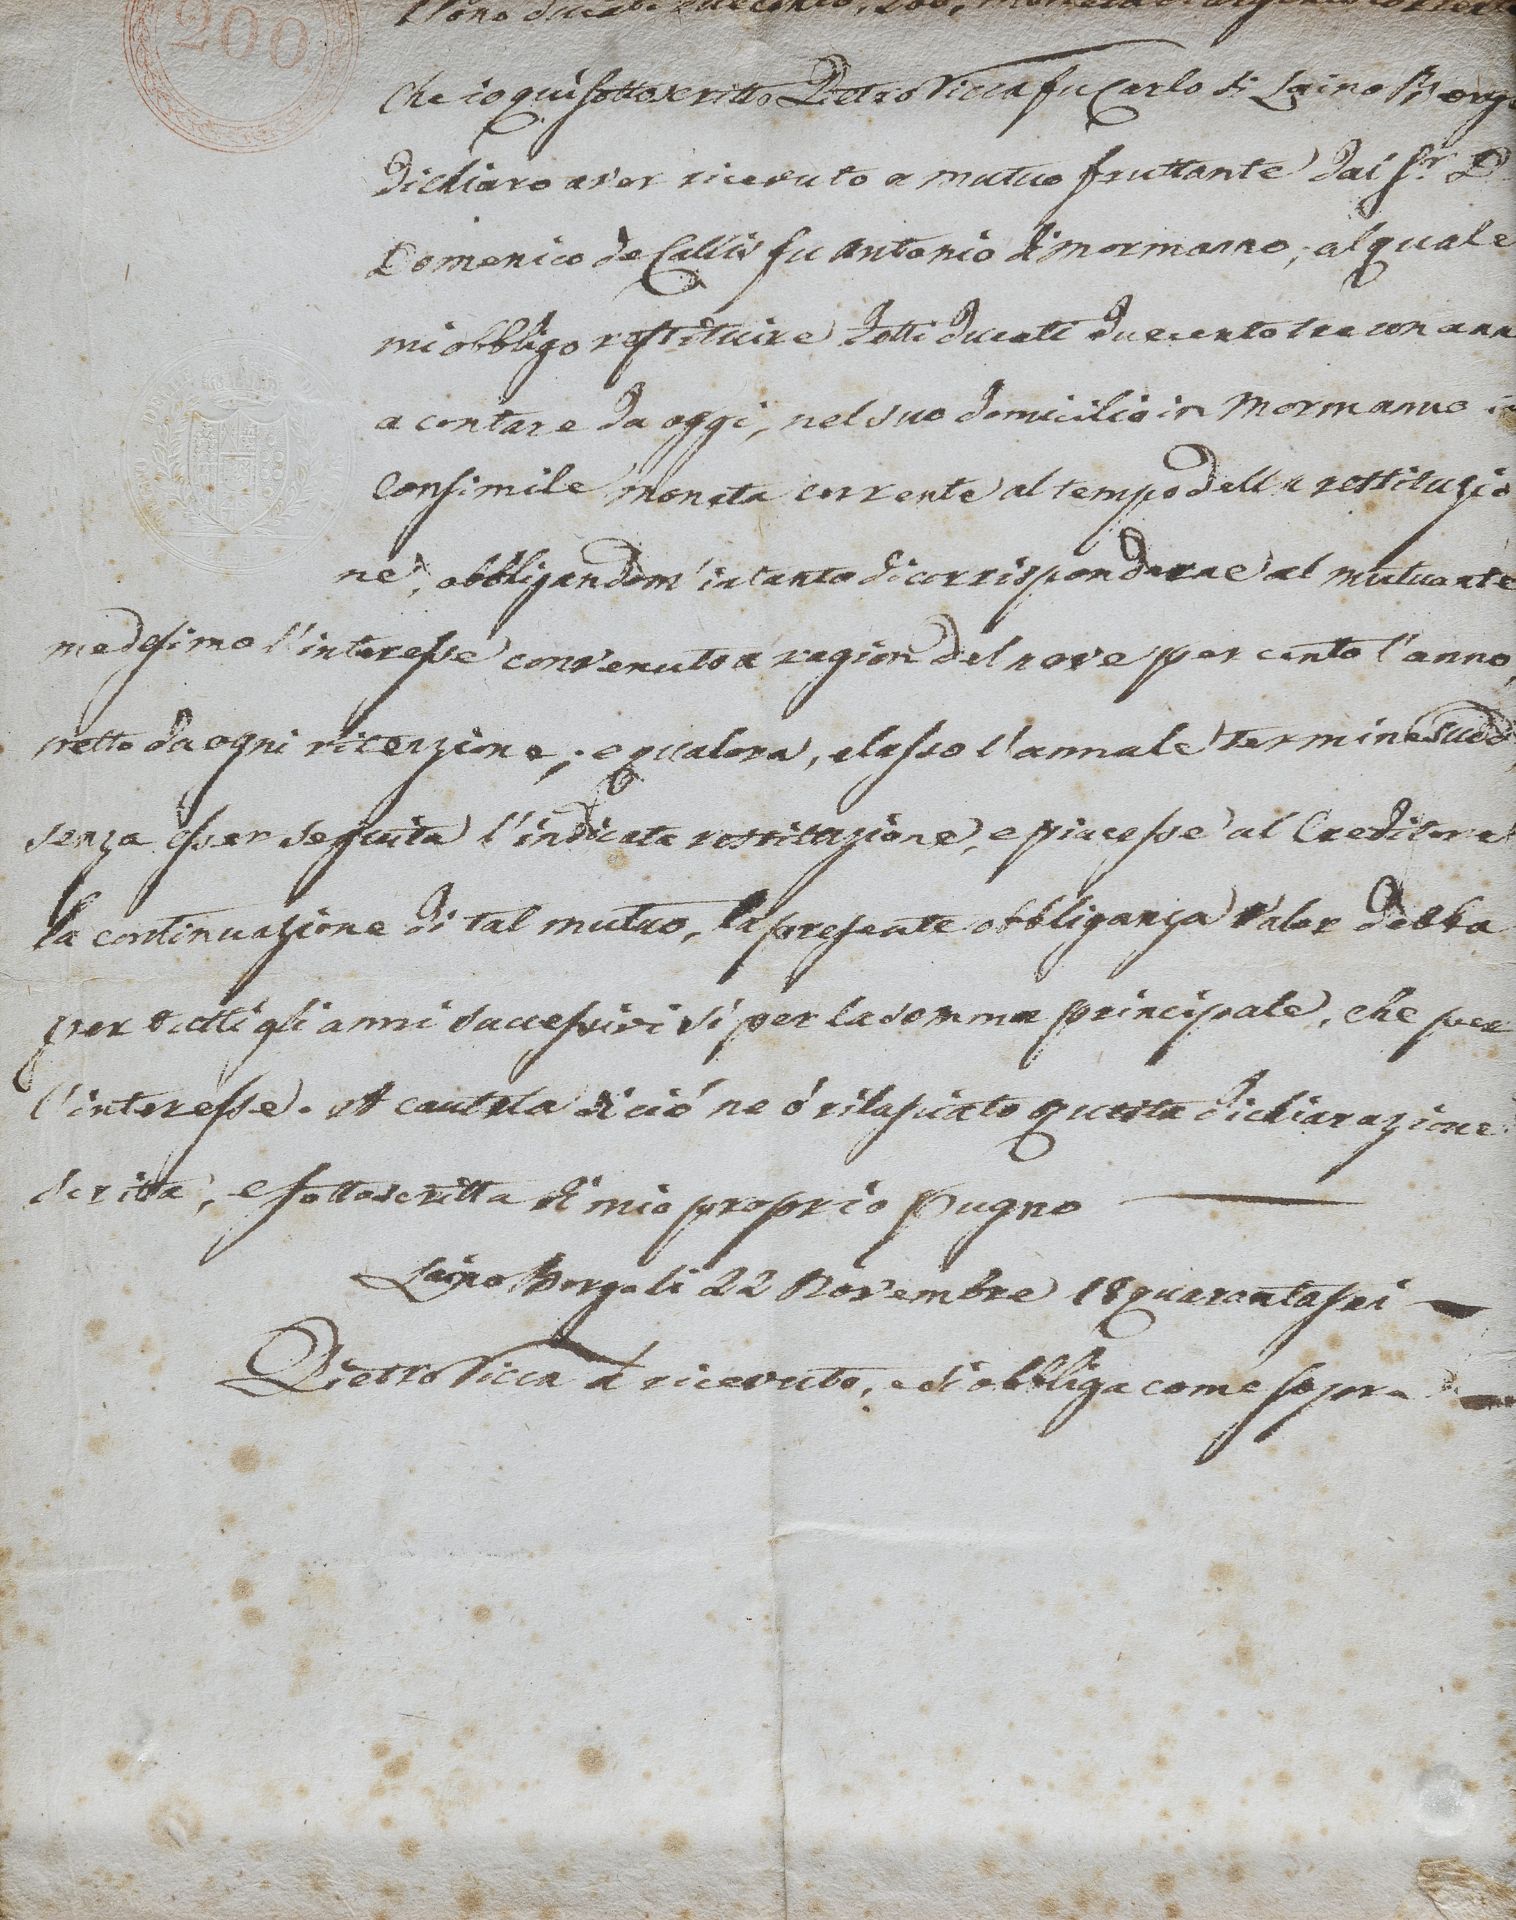 200
Sono ducati duecento, 200, moneta d'argento corrente
Che io qui sottoscritto Pietro Vicca fu Carlo di Laino Borgo
dichiaro aver ricevuto a mutuo fruttante dal Sr. D.
Domenico de Callis fu Antonio di Mormanno, al quale
mi obbligo restituire detti ducati duecento tra un ann
a contare da oggi, nel suo domicilio in Mormanno in
consimile moneta corrente al tempo della restituzio
ne, obbligandom' intanto di corrisponderne al mutuante
medesimo l'interesse convenuto a ragion del nove per cento l'anno,
netto da ogni ritenzione; e qualora, elasso l'annale termine sud.o,
senza esser seguita l'indicata restituzione, e piacesse al Creditore
la continuazione di tal mutuo, la presente obbliganza valer debba
per tutti gli anni successivi sì per la somma principale, che per
l'interesse. A cautela di ciò ne ò rilasciato questa dichiarazione
scritta, e sottoscritta di mio proprio pugno
Laino Borgo li 22 Novembre 18quarantasei
Pietro Vicca à ricevuto, e si obbliga come sopra